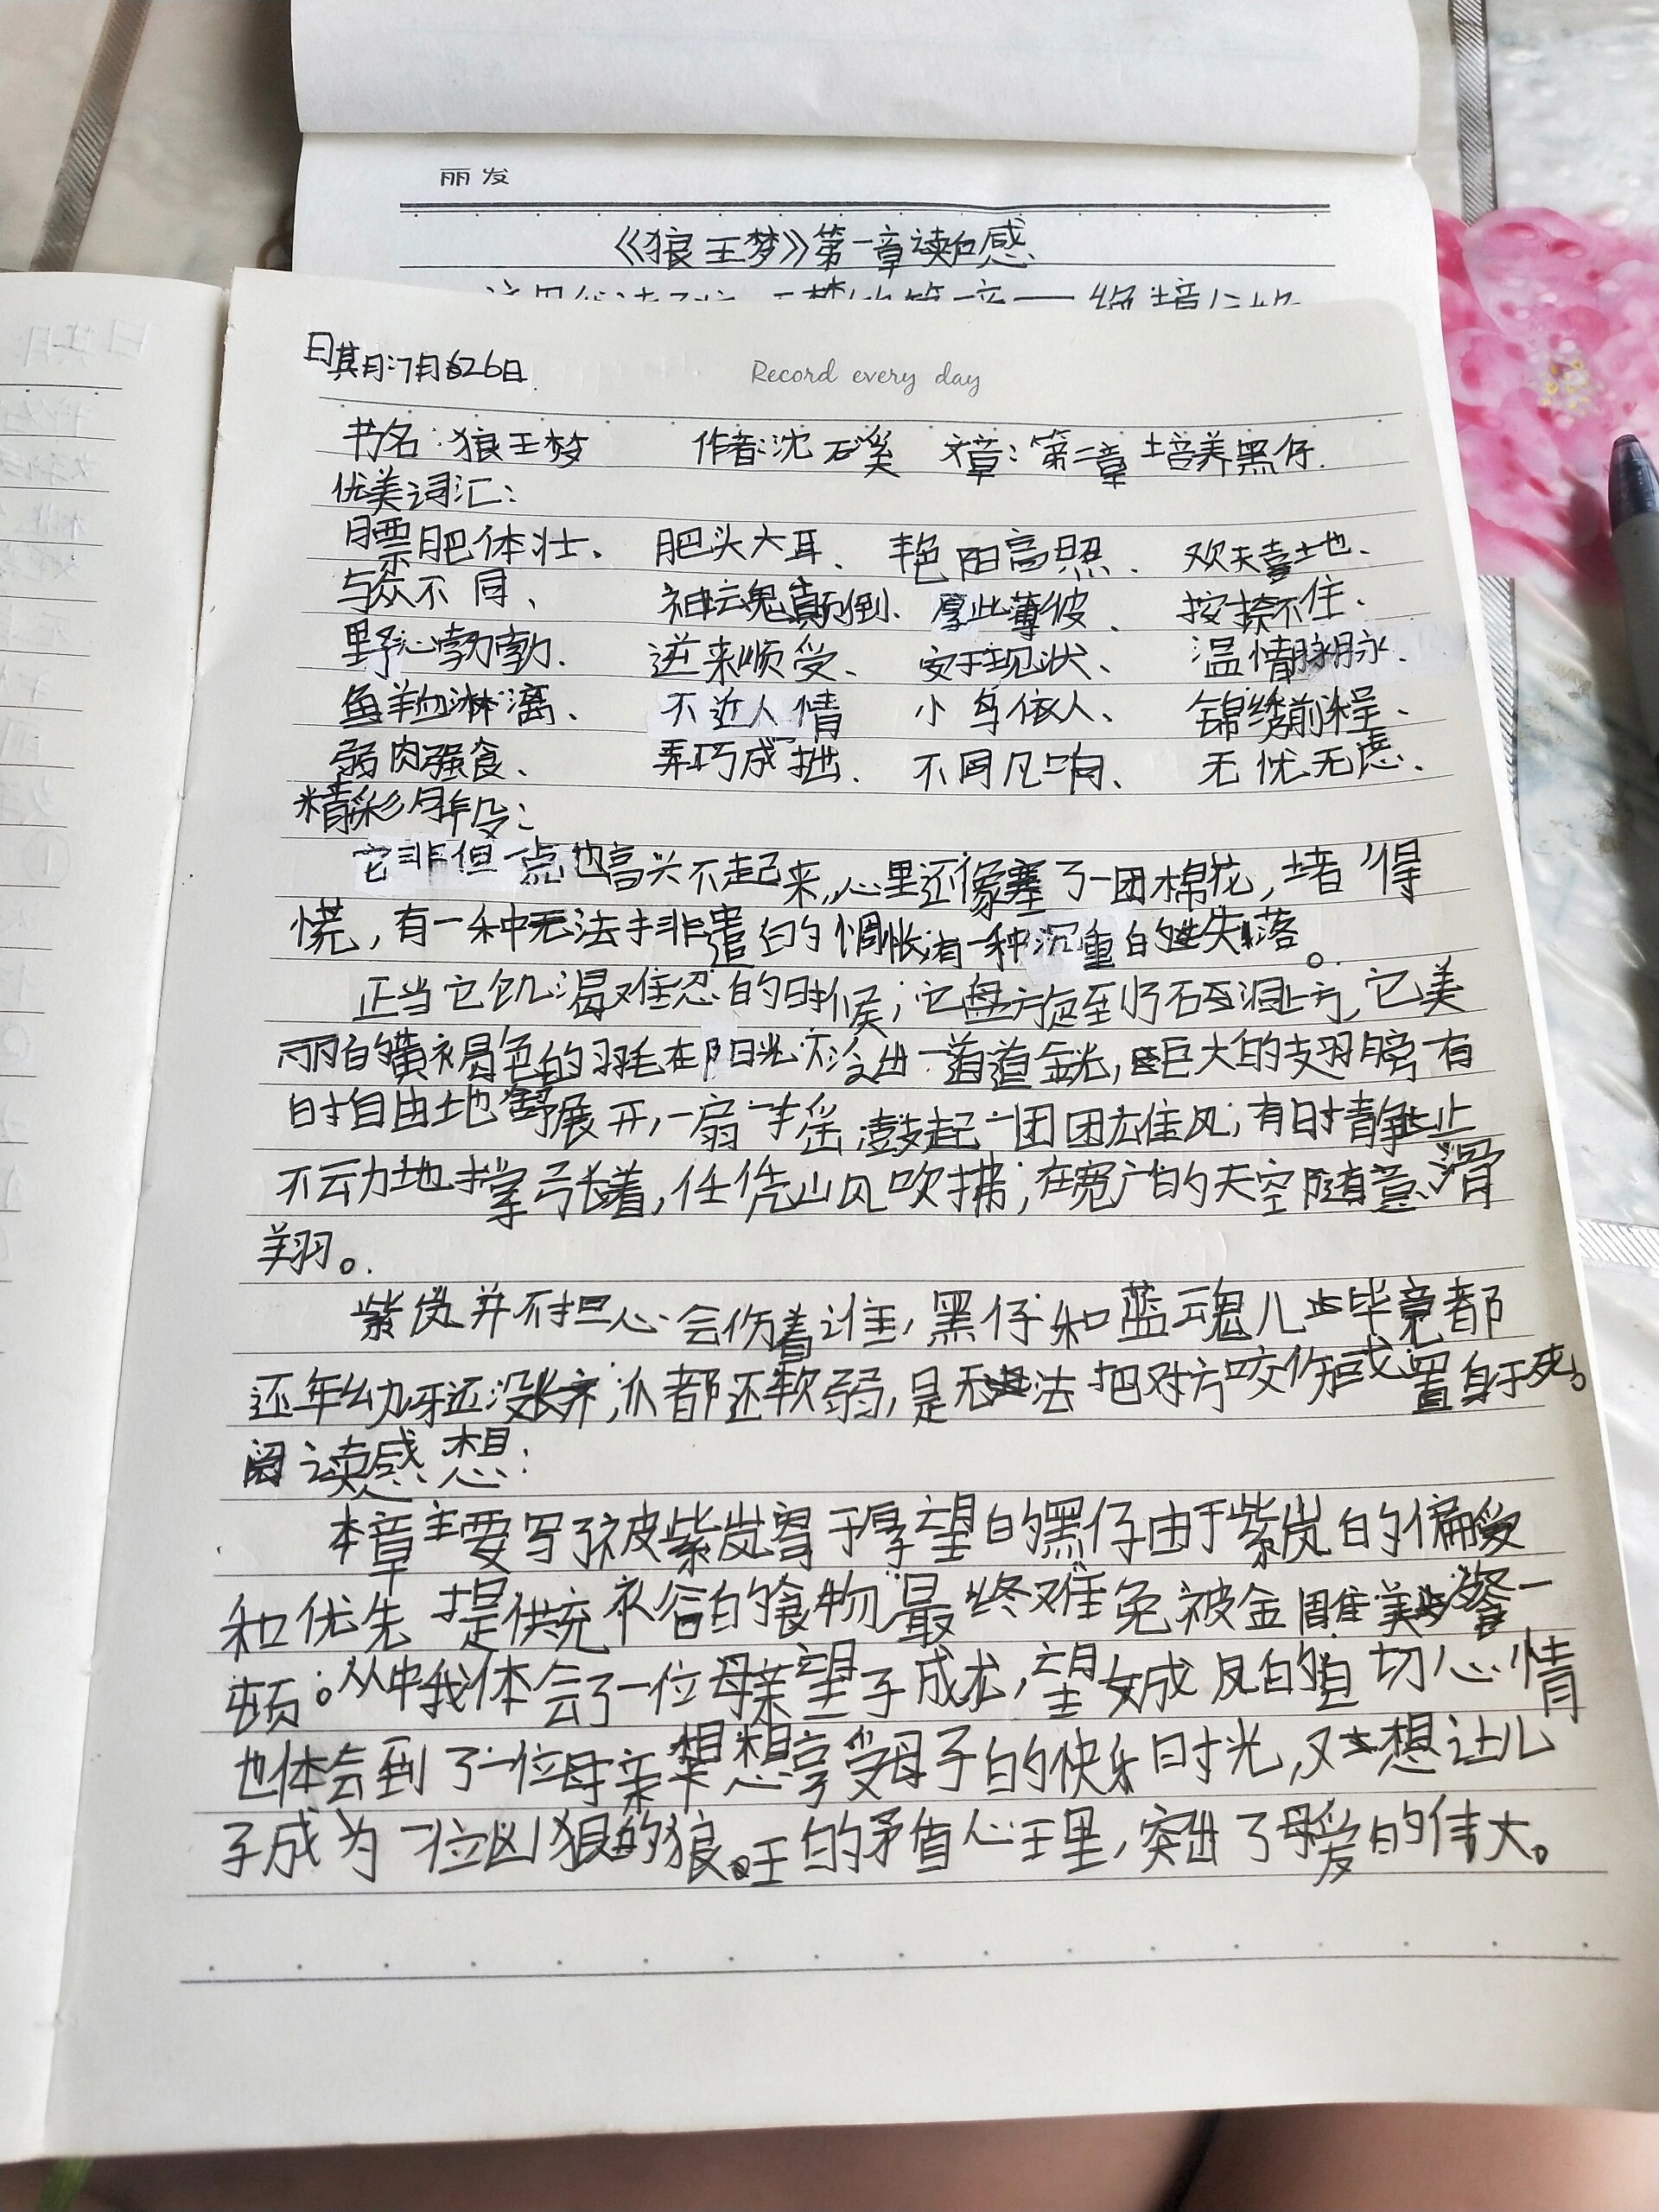 丽发
《狼王梦》第一章读后感
日期:7月26日
Record every day
书名:狼王梦 作者:沈石溪 文章:第二章 培养黑仔.
优美词汇:
膘肥体壮、 肥头大耳、 艳阳高照、 欢天喜地、
与众不同、 神魂颠倒、 厚此薄彼、 按捺不住、
野心勃勃、 逆来顺受、 安于现状、 温情脉脉、
鲜血淋漓、 不近人情 小鸟依人、 锦绣前程、
弱肉强食、 弄巧成拙、 不同凡响、 无忧无虑、
精彩片段:
它非但一点也高兴不起来,心里还像塞了一团棉花,堵得
慌,有一种无法排遣的惆怅有一种沉重的失落。
正当它饥渴难忍的时候;它盘旋到石洞上方,它美
丽的黄褐色的羽毛在阳光泛出一道道金光,巨大的翅膀有
时自由地舒展开,一扇一摇鼓起一团团雄风;有时静止
不动地撑张着,任凭山风吹拂;在宽广的天空随意滑
翔。
紫岚并不担心会伤着谁,黑仔和蓝魂儿毕竟都
还年幼牙还没长齐;爪都还软弱,是无法把对方咬伤或置身于死。
阅读感想:
本章主要写了被紫岚寄于厚望的黑仔由于紫岚的偏爱
和优先提供充补给的食物最终难免被金雕美餐一
顿。从中我体会了一位母亲望子成龙,望女成凤的切心情
也体会到了一位母亲想享受母子的快乐时光,又想让儿
子成为一位凶狠的狼王的矛盾心理,突出了母爱的伟大。